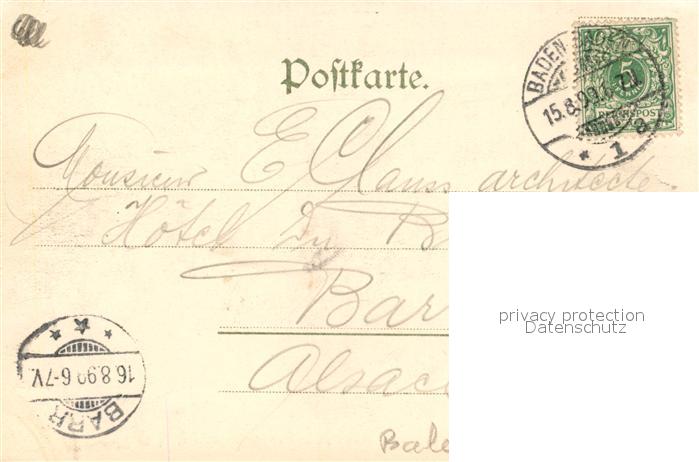 Postkarte.
BADEN-BADEN
15.8.99. 7-8
* 1 a
5
REICHSPOST
Monsieur E Clauss architecte.
Hôtel Du B
Bar
Alsac
BARR
16.8.99.6-7V.
Bale
privacy protection
Datenschutz